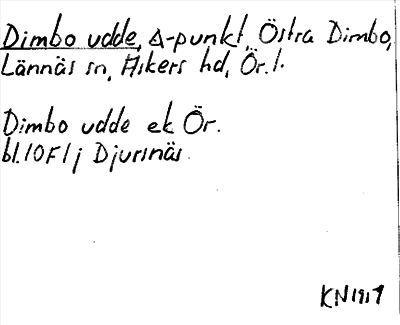 Dimbo udde, Δ-punkt, Östra Dimbo,
Lännäs sn, Askers hd, Ör. l.
Dimbo udde ek Ör.
bl. 10F1j Djursnäs